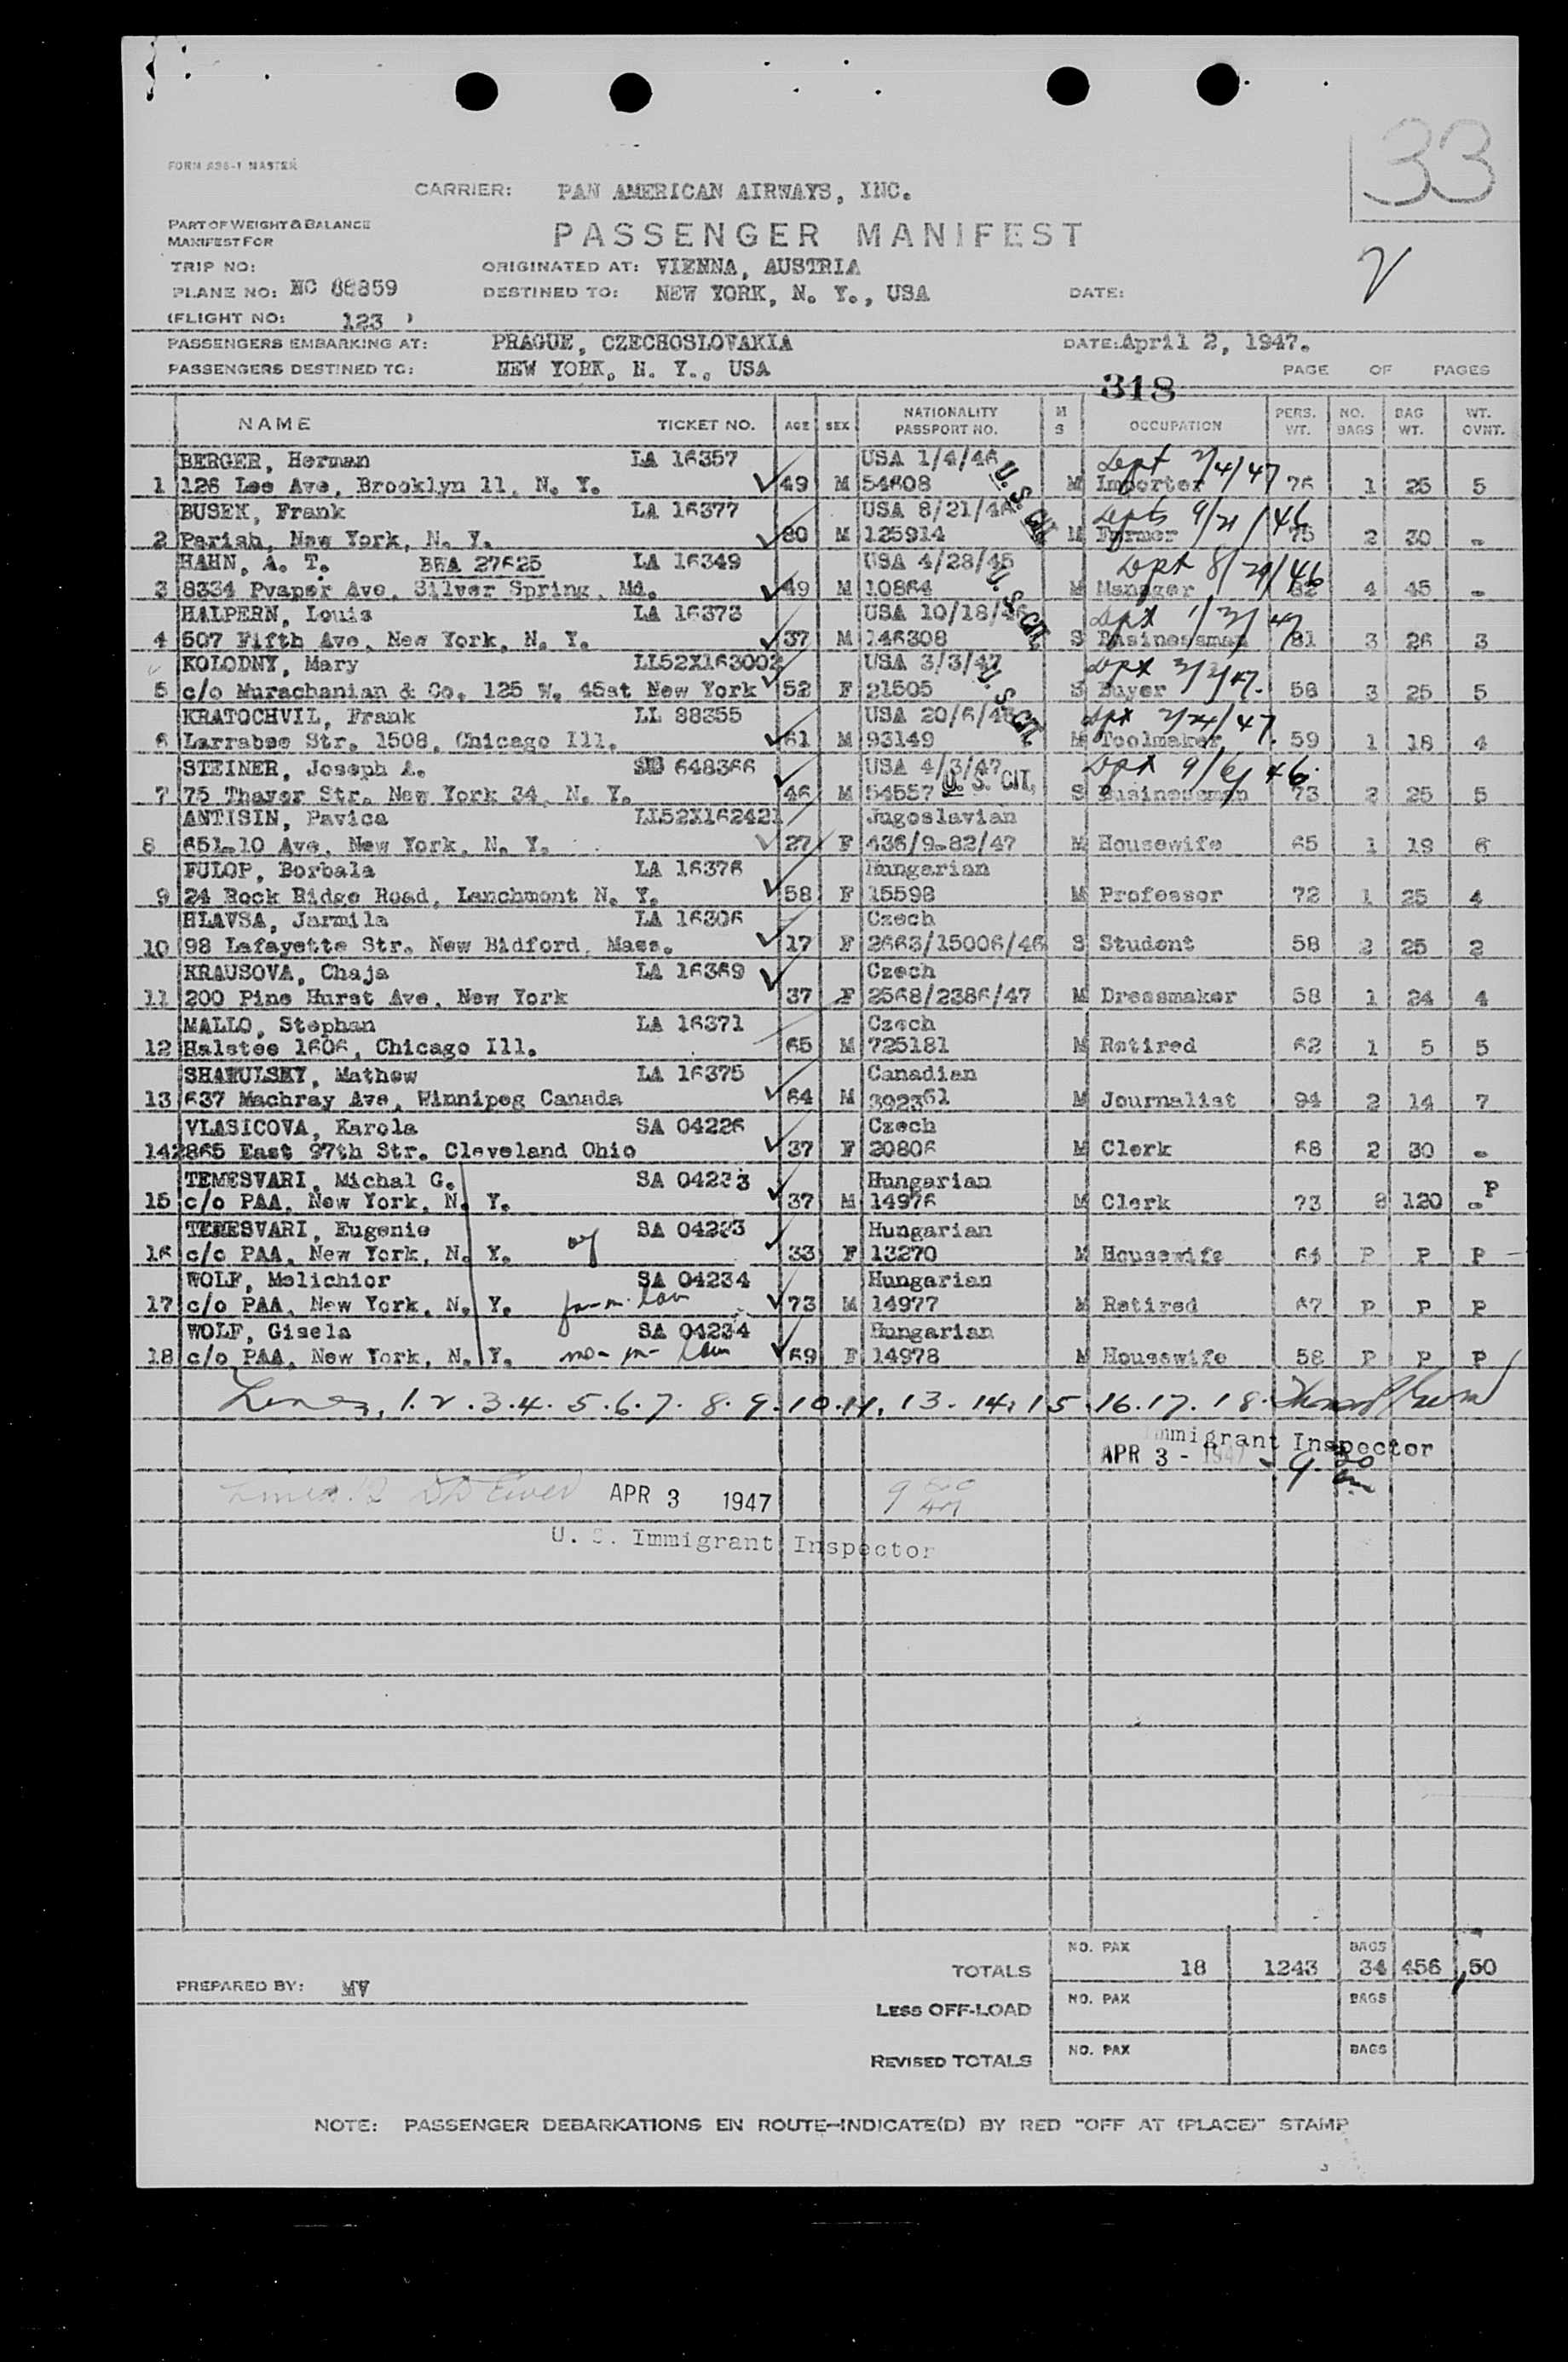 33
FORM 296-1 MASTER
CARRIER: PAN AMERICAN AIRWAYS, INC.
PART OF WEIGHT & BALANCE
MANIFEST FOR
PASSENGER MANIFEST
TRIP NO:
ORIGINATED AT: VIENNA, AUSTRIA
PLANE NO: NC 88859
DESTINED TO: NEW YORK, N. Y., USA
DATE:
(FLIGHT NO: 123 )
PASSENGERS EMBARKING AT: PRAGUE, CZECHOSLOVAKIA
DATE: April 2, 1947.
PASSENGERS DESTINED TO: NEW YORK, N. Y., USA
318
PAGE OF PAGES
NAME TICKET NO. AGE SEX NATIONALITY PASSPORT NO. M S OCCUPATION PERS. WT. NO. BAGS BAG WT. WT. OVNT.
BERGER, Herman LA 16357 USA 1/4/46 Dept 2/4/47
1 126 Lee Ave, Brooklyn 11, N. Y. 49 M 54608 U. S. CIT. M Importer 76 1 25 5
BUSEK, Frank LA 16377 USA 8/21/46 Dept 9/21/46
2 Parish, New York, N. Y. 80 M 125914 M Farmer 75 2 30 -
HAHN, A. T. BRA 27625 LA 16349 USA 4/28/45 Dept 8/29/46
3 8334 Pvaper Ave, Silver Spring, Md. 49 M 10864 U. S. CIT. M Manager 82 4 45 -
HALPERN, Louis LA 16373 USA 10/18/46 Dpt 1/2/47
4 507 Fifth Ave, New York, N. Y. 37 M 146308 S Businessman 81 3 26 3
KOLODNY, Mary LL52X163002 USA 3/3/47 Dpt 3/2/47.
5 c/o Murachanian & Co, 125 W, 45st New York 52 F 21505 U. S. CIT. S Buyer 58 3 25 5
KRATOCHVIL, Frank LL 88355 USA 20/6/46 Dpt 2/24/47.
6 Larrabee Str. 1508, Chicago Ill. 61 M 93149 M Toolmaker 59 1 18 4
STEINER, Joseph A. 648366 USA 4/3/47 Dpt 9/6/46.
7 75 Thayer Str. New York 34, N. Y. 46 M 54557 U. S. CIT. S Businessman 73 2 25 5
ANTISIN, Pavica LL52X162421 Jugoslavian
8 651-10 Ave, New York, N. Y. 27 F 436/9-82/47 M Housewife 65 1 19 6
FULOP, Borbala LA 16376 Hungarian
9 24 Rock Ridge Road, Lanchmont N. Y. 58 F 15598 M Professor 72 1 25 4
HLAVSA, Jarmila LA 16306 Czech
10 98 Lafayette Str. New Bidford, Mass. 17 F 2663/15006/46 S Student 58 2 25 2
KRAUSOVA, Chaja LA 16369 Czech
11 200 Pine Hurst Ave, New York 37 F 2568/2386/47 M Dressmaker 58 1 24 4
MALLO, Stephan LA 16371 Czech
12 Halstee 1606, Chicago Ill. 65 M 725181 M Retired 62 1 5 5
SHAWULSKY, Mathew LA 16375 Canadian
13 637 Machray Ave, Winnipeg Canada 64 M 392361 M Journalist 94 2 14 7
VLASICOVA, Karola SA 04226 Czech
14 2865 East 97th Str. Cleveland Ohio 37 F 20806 M Clerk 68 2 30 -
TEMESVARI, Michal G. SA 04233 Hungarian
15 c/o PAA, New York, N. Y. 37 M 14976 M Clerk 73 8 120 - P
TEMESVARI, Eugenie SA 04233 Hungarian
16 c/o PAA, New York, N. Y. 33 F 13270 M Housewife 64 P P P
WOLF, Melichior SA 04234 Hungarian
17 c/o PAA, New York, N. Y. 73 M 14977 M Retired 67 P P P
WOLF, Gisela SA 04234 Hungarian
18 c/o PAA, New York, N. Y. 69 F 14978 M Housewife 58 P P P
Lines, 1.2.3.4.5.6.7.8.9.10.11, 13.14.15.16.17.18.
Immigrant Inspector
APR 3 - 1947
APR 3 1947
U. S. Immigrant Inspector
NO. PAX BAGS
TOTALS 18 1243 34 456 50
PREPARED BY: MV
NO. PAX BAGS
LESS OFF-LOAD
NO. PAX BAGS
REVISED TOTALS
NOTE: PASSENGER DEBARKATIONS EN ROUTE-INDICATE(D) BY RED "OFF AT (PLACE)" STAMP